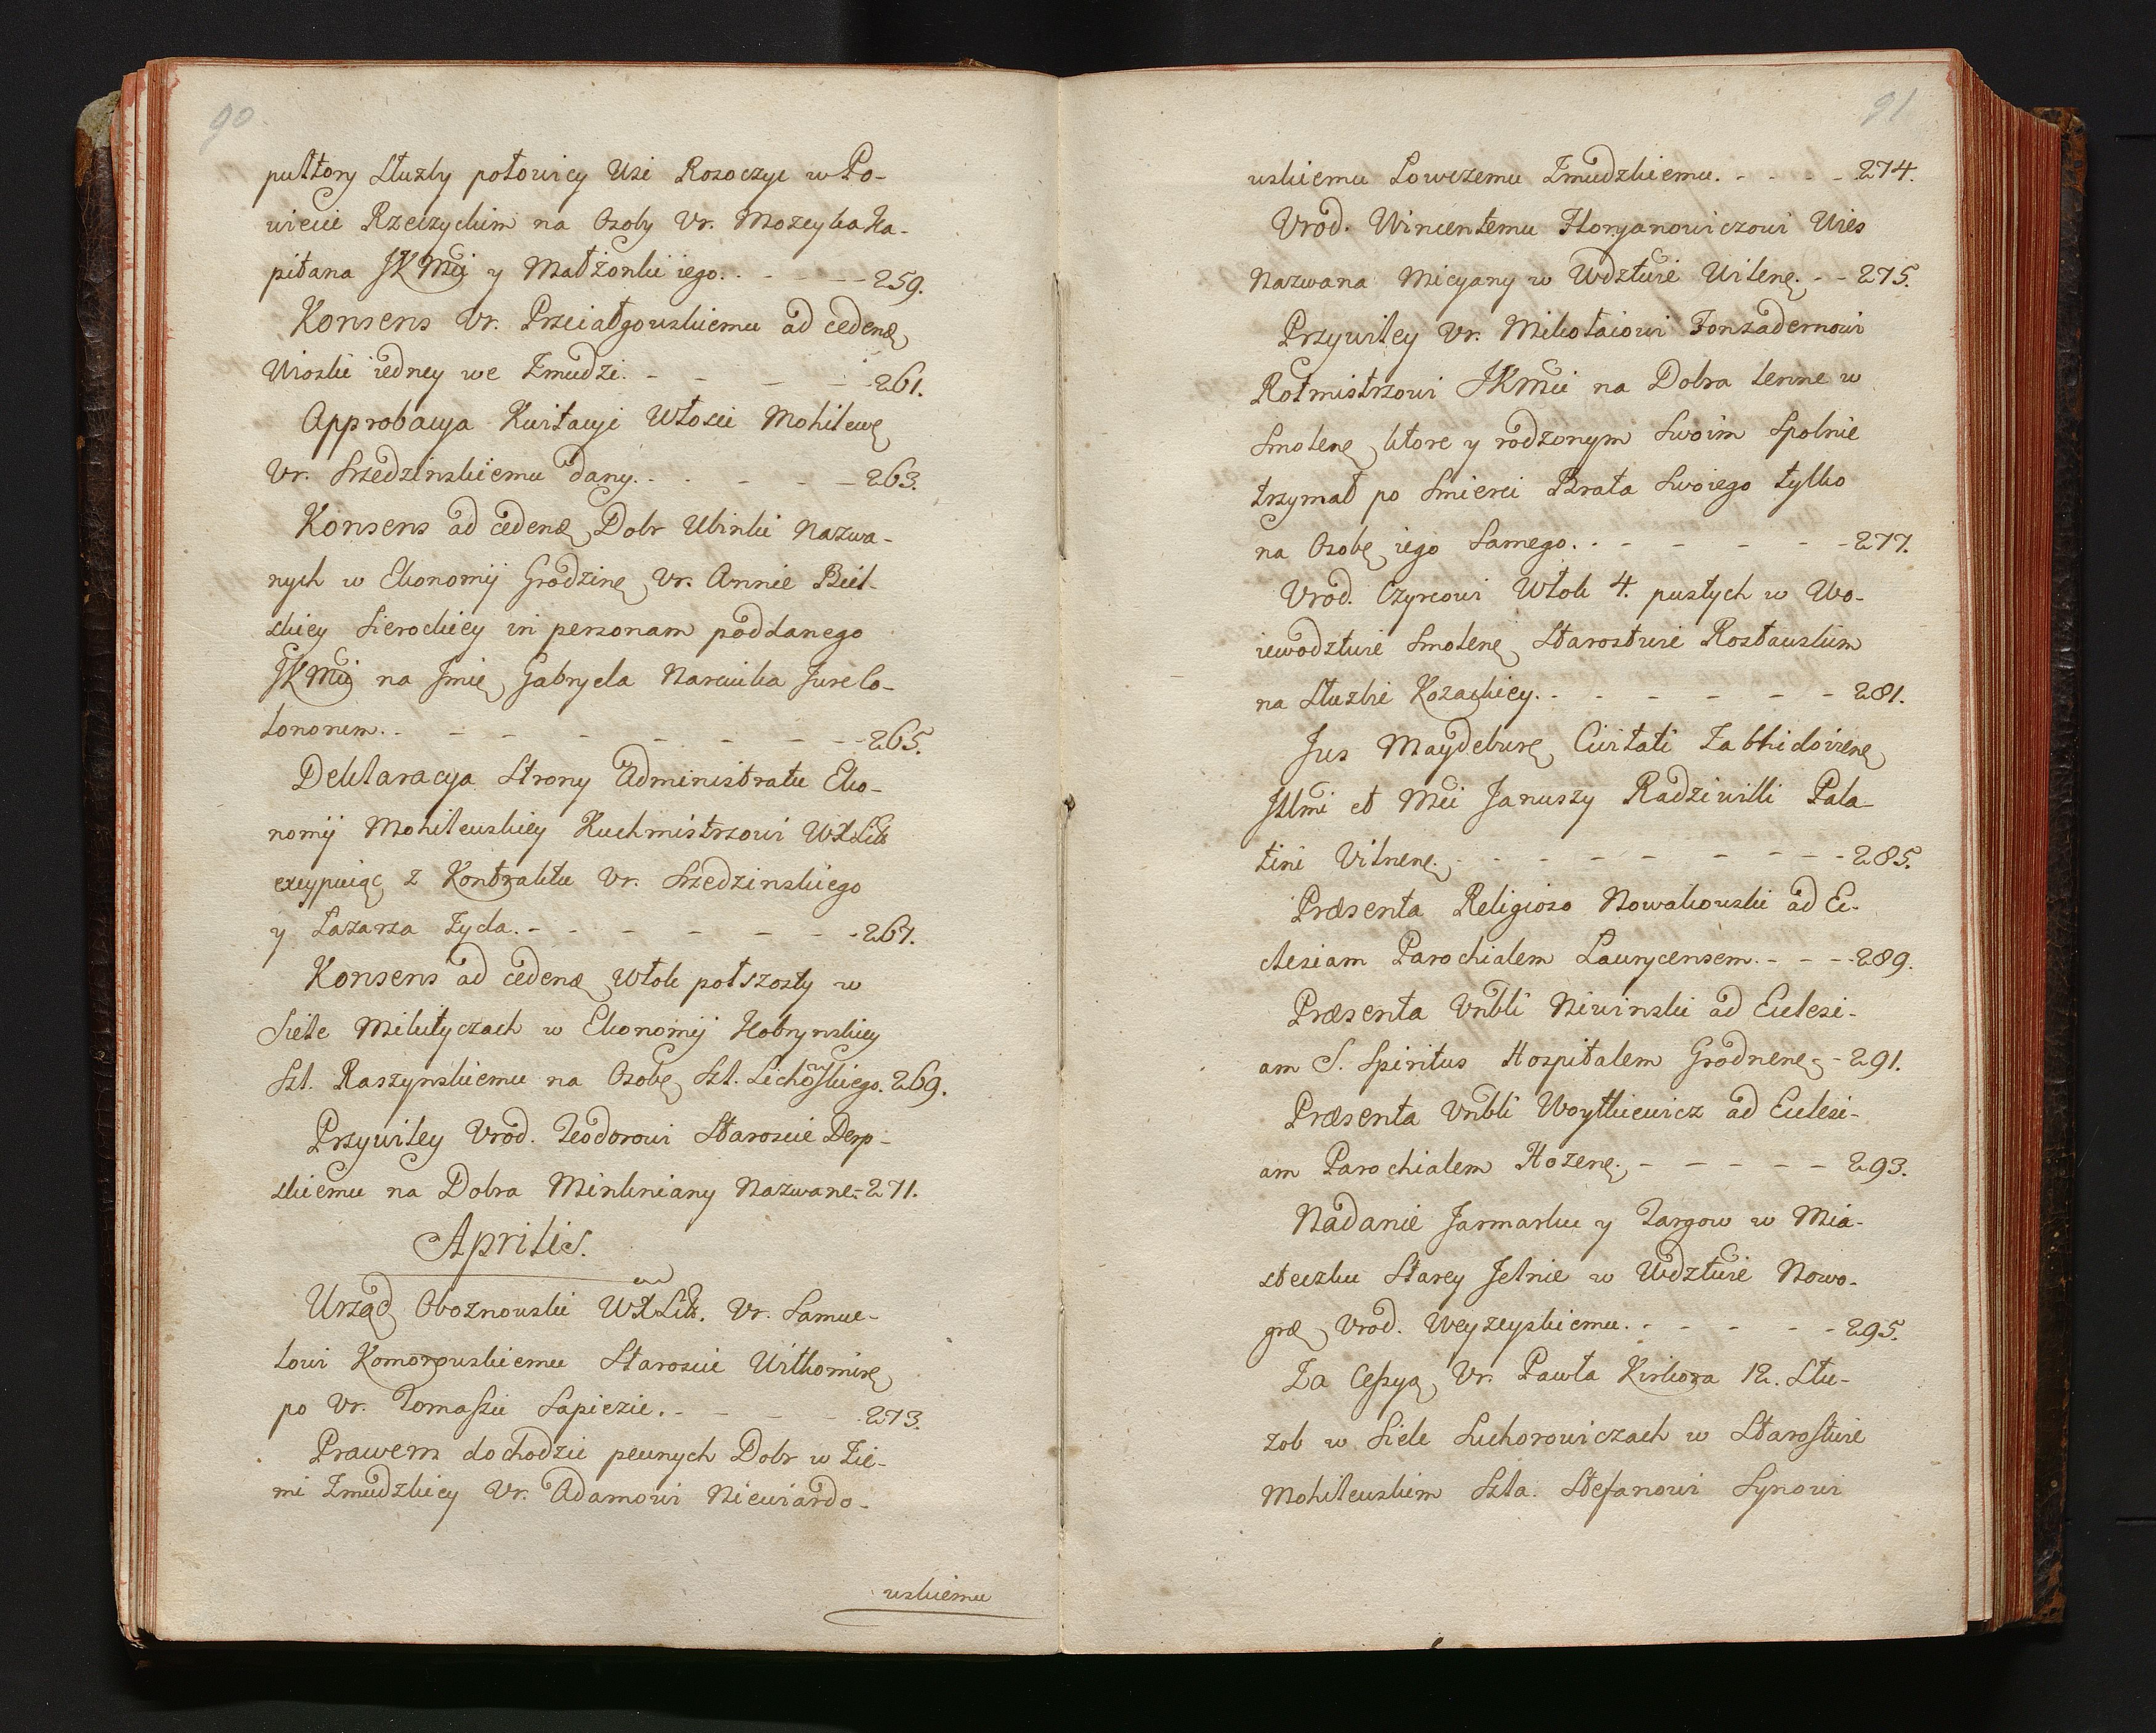 90
pułtory Służby połowicy Wsi Rosoczyc w Po-
wiecie Rzeczyckim na Osoby Vr. Mozeyka Ka-
pitana JKMći y Małżonki iego. - - - 259.
Konsens Vr. Przciałgowskiemu ad cedenđ
Wioski iedney we Zmudzi. - - - - 261.
Approbacya Kwitacyi Włości Mohilewę
Vr. Srzedzinskiemu dany. - - - - 263.
Konsens ad cedenđ Dobr Ubinki Nazwa-
nych w Ekonomij Grodzinę Vr. Annie Biel-
skiey Sierockiey in personam poddanego
JKMći na Jmię Gabryela Narcuika Jure Co-
lonorum. - - - - - - - 265.
Deklaracya Strony Administratu Eko-
nomij Mohilewskiey Kuchmistrzowi WXLitt
excypuiąc z Kontraktu Vr. Srzedzinskiego
y Lazarza Zyda. - - - - - - 267.
Konsens ad cedenđ Włok połszosty w
Siele Milutyczach w Ekonomij Kobrynskiey
Szl. Raszynskiemu na Osobę Szl. Lichowskiego. 269.
Przywiley Vrod. Teodorowi Staroscie Derp-
skiemu na Dobra Minkniany Nazwane - 271.
Aprilis.
Urząd Oboznowski WXLitt. Vr. Samue-
lowi Komorowskiemu Staroscie Wilkomirę
po Vr. Tomaszu Sapiezie. - - - - 273.
Prawem dochodzic pewnych Dobr w Zie-
mi Zmudzkiey Vr. Adamowi Niewiardo-
wskiemu
91
wskiemu Lowczemu Zmudzkiemu. - - - - 274.
Vrod. Wincentemu Floryanowiczowi Wies
Nazwana Micyany w Wdztwie Wilenę. - - 275.
Przywiley Vr. Mikołaiowi Fonzadernowi
Rotmistrzowi JKMći na Dobra lenne w
Smolenę ktore y rodzonym Swoim Spolnie
trzymał po Smierci Brata Swoiego tylko
na Osobę iego Samego. - - - - - - 277.
Vrod. Czyrcowi Włok 4. pustych w Wo-
iewodztwie Smolenę Starostwie Rosławskim
na Służbie Kozackiey. - - - - - - 281.
Jus Maydeburę Civitati Zabłudovienę
Jllmi et Mći Januszy Radziwilli Pala-
tini Vilnenę. - - - - - - - - 285.
Præsenta Religioso Nowakowski ad Ec-
clesiam Parochialem Laurycensem. - - - 289.
Præsenta Vnbli Niwinski ad Ecclesi-
am S. Spiritus Hospitalem Grodnenę - - 291.
Præsenta Vnbli Woytkiewicz ad Ecclesi-
am Parochialem Hozenę. - - - - - 293.
Nadanie Jarmarku y Targow w Mia-
steczku Starey Jelnie w Wdztwie Nowo-
grđ Vrod. Weyzeyskiemu. - - - - - 295.
Za Cessyą Vr. Pawła Kirkora 12. Słu-
zob w Siele Suchorowiczach w Starostwie
Mohilewskim Szla. Stefanowi Synowi